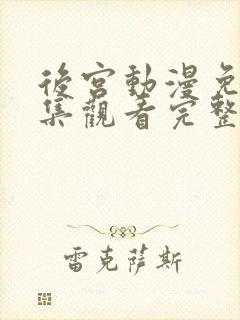 後宮動漫免
集觀看完整
雷克薩斯